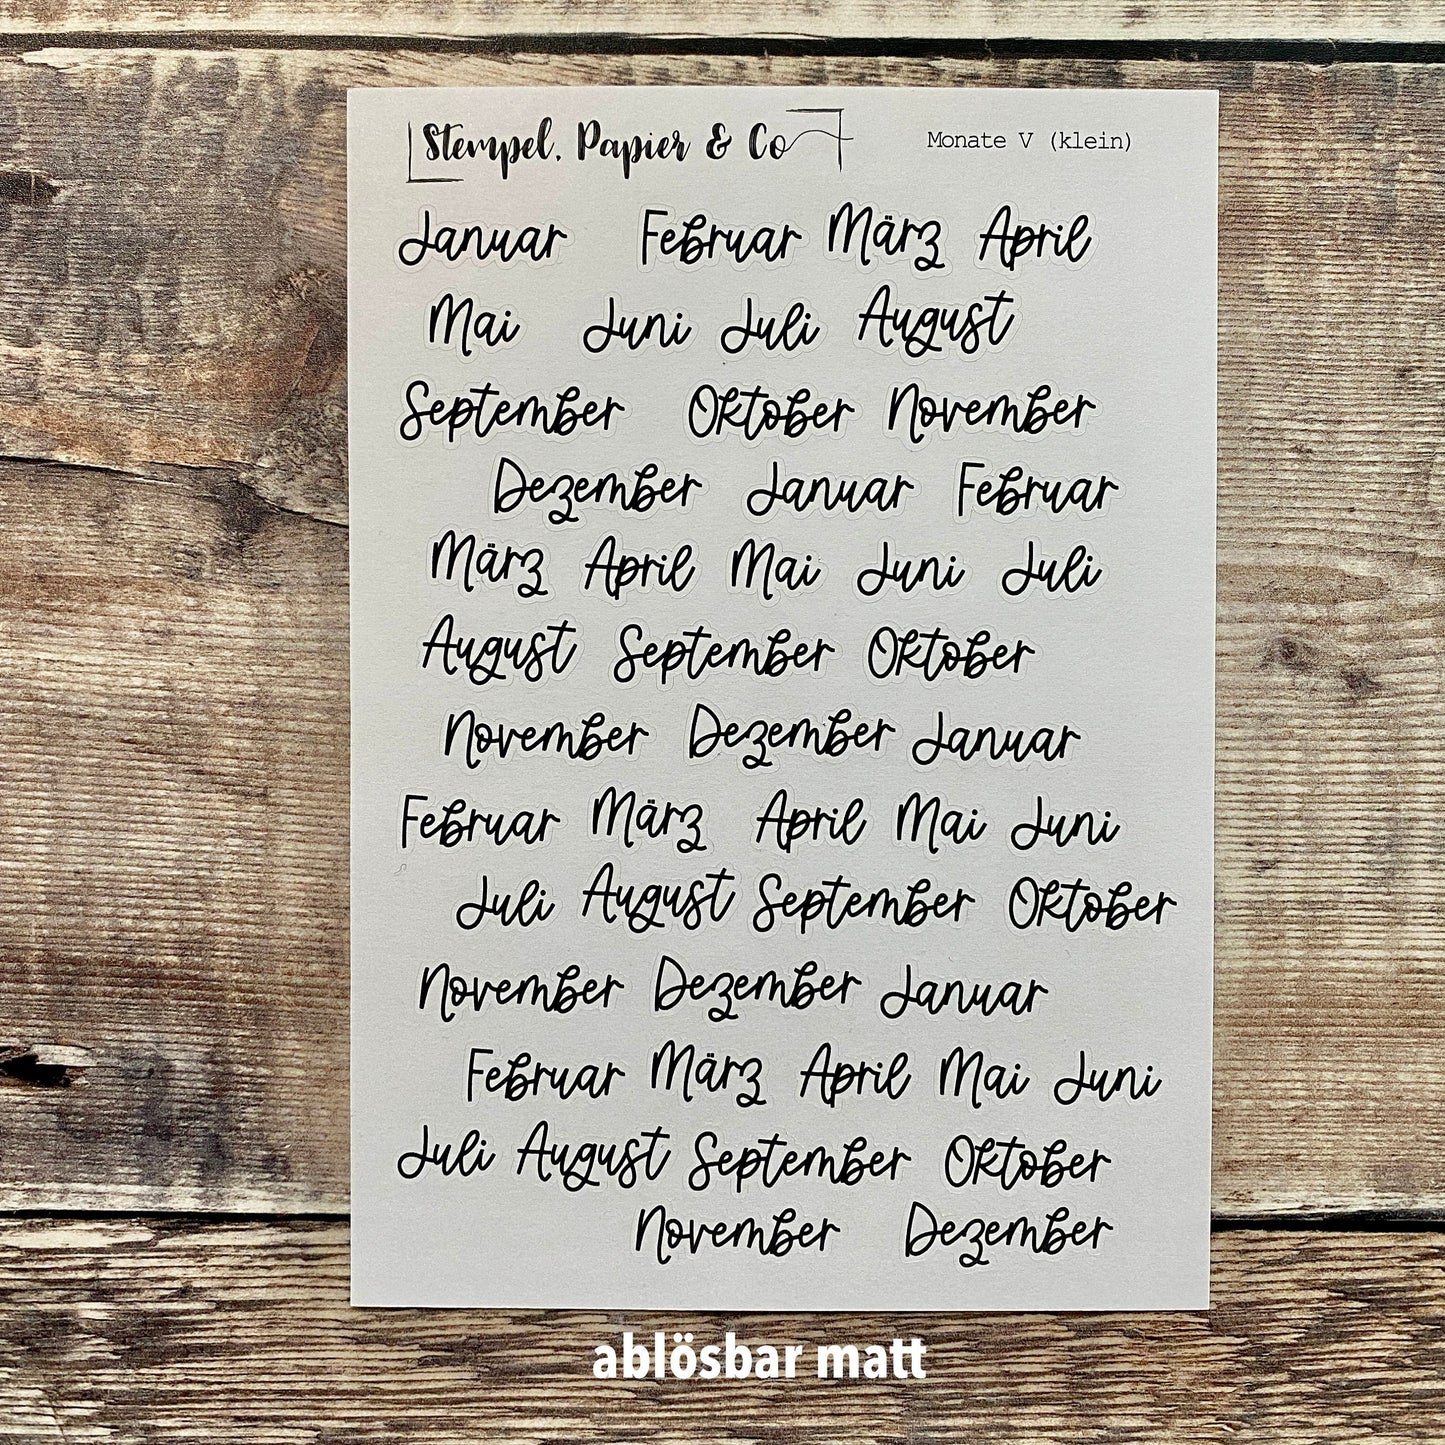 Stempel, Papier & Co Monate V (klein)
Januar Februar März April
Mai Juni Juli August
September Oktober November
Dezember Januar Februar
März April Mai Juni Juli
August September Oktober
November Dezember Januar
Februar März April Mai Juni
Juli August September Oktober
November Dezember Januar
Februar März April Mai Juni
Juli August September Oktober
November Dezember
ablösbar matt